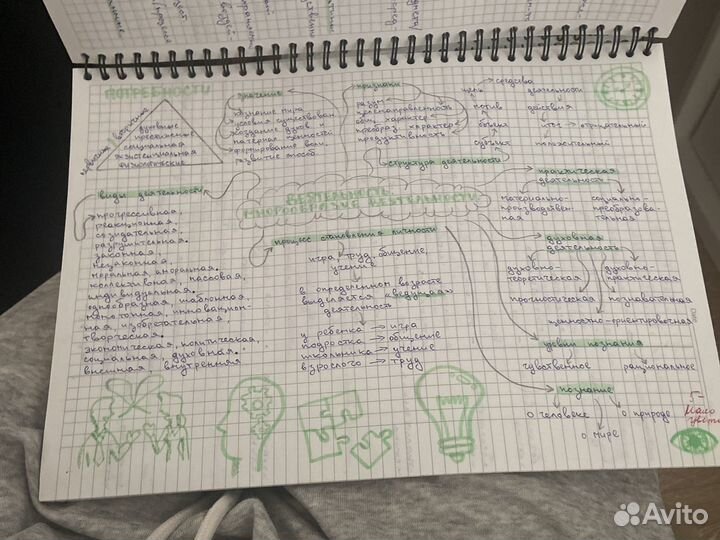 ПОТРЕБНОСТИ
духовные
престижные
социальные
экзистенциальные
физиологические
первичные
вторичные
значение
познание мира
условия существован
создание духов.
материал ценностей
формирование
развитие способ
признаки
разум
целенаправленность
общ. характер
преобраз. характер
продуктивность
средства
цель
деятельности
мотив
действия
объект
отрицательный
субъект
положительный
структура деятельности
ДЕЯТЕЛЬНОСТЬ
МНОГООБРАЗИЕ ДЕЯТЕЛЬНОСТИ
виды деятельности
прогрессивная,
реакционная,
созидательная,
разрушительная.
законная,
незаконная,
моральная, аморальная.
коллективная, массовая,
индивидуальная.
однообразная, шаблонная,
монотонная, инновацион-
ная, изобретательная,
творческая.
экономическая, политическая,
социальная, духовная.
внешняя, внутренняя
процесс становления личности
игра, труд, общение,
учение
в определенном возрасте
выделяется «ведущая»
деятельность
у ребенка → игра
подростка → общение
школьника → учение
взрослого → труд
практическая
деятельность
материально-
производствен-
ная
социально-
преобразова-
тельная
духовная
деятельность
духовно-
теоретическая
духовно-
практическая
прогностическая
познавательная
ценностно-ориентировочная
уровни познания
чувственное
рациональное
познание
о человеке
о мире
о природе
5-
Мало
цвета
Avito